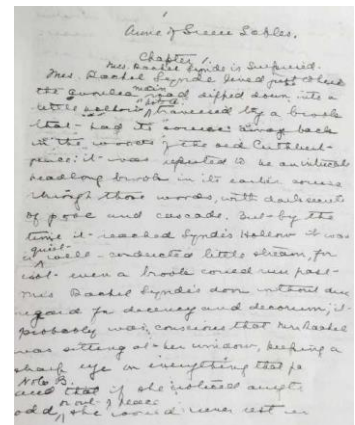 Anne of Green Gables.
Chapter 1.
Mrs. Rachel Lynde is Surprised.
Mrs. Rachel Lynde lived just where
the Avonlea main road dipped down into a
little hollow traversed by a brook
that had its source away back
in the woods of the old Cuthbert
place; it was reputed to be an intricate
headlong brook in its earlier course
through those woods, with dark secrets
of pool and cascade. But by the
time it reached Lynde's Hollow it was
a quiet well-conducted little stream, for
not even a brook could run past
Mrs Rachel Lynde's door without due
regard for decency and decorum; it
probably was conscious that Mrs Rachel
was sitting at her window, keeping a
sharp eye on everything that pa
Note B.
and that if she noticed anyth
odd or out of place she would never rest un